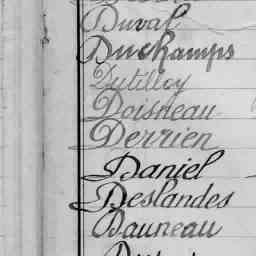 Duval
Duchamps
Dutilloy
Doisneau
Derrien
Daniel
Deslandes
Dauneau